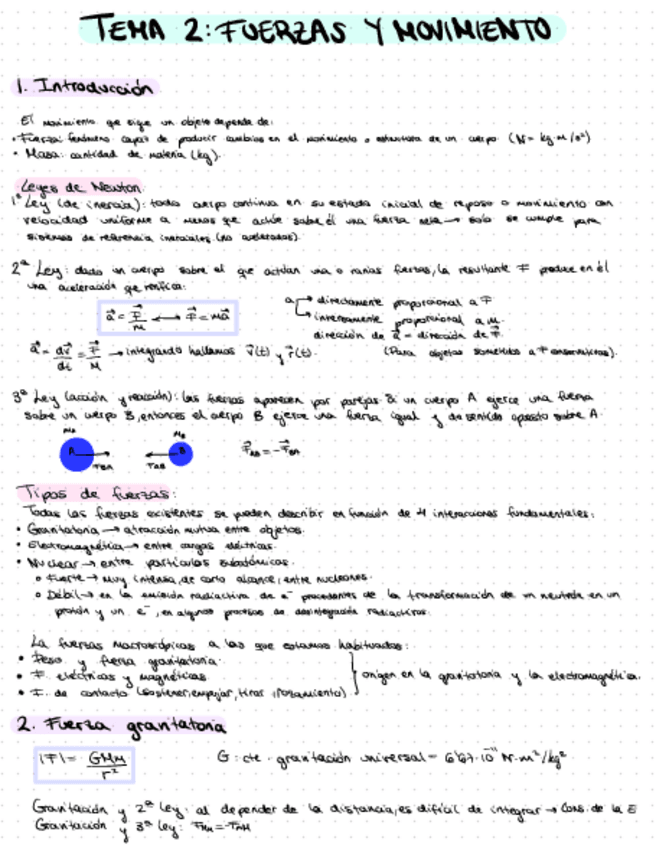 TEMA 2: FUERZAS Y MOVIMIENTO
1. Introducción
El movimiento que sigue un objeto depende de:
• Fuerza: fenómeno capaz de producir cambios en el movimiento o estructura de un cuerpo. (N = kg·m/s²)
• Masa: cantidad de materia (kg).
Leyes de Newton
1ª Ley (de inercia): todo cuerpo continua en su estado inicial de reposo o movimiento con
velocidad uniforme a menos que actúe sobre él una fuerza neta → solo se cumple para
sistemas de referencia inerciales (no acelerados).
2ª Ley: dado un cuerpo sobre el que actúan una o varias fuerzas, la resultante F produce en él
una aceleración que verifica:
a⃗ = F⃗/M ⟷ F⃗ = ma⃗
a → directamente proporcional a F
→ inversamente proporcional a m.
dirección de a⃗ = dirección de F⃗.
a⃗ = dv⃗/dt = F⃗/M → integrando hallamos v⃗(t) y r⃗(t). (Para objetos sometidos a F conservativas).
3ª Ley (acción y reacción): las fuerzas aparecen por parejas. Si un cuerpo A ejerce una fuerza
sobre un cuerpo B, entonces el cuerpo B ejerce una fuerza igual y de sentido opuesto sobre A.
MA MB
A B F⃗AB = -F⃗BA
FBA FAB
Tipos de fuerzas:
Todas las fuerzas existentes se pueden describir en función de 4 interacciones fundamentales:
• Gravitatoria → atracción mutua entre objetos.
• Electromagnética → entre cargas eléctricas.
• Nuclear → entre partículas subatómicas.
o Fuerte → muy intensa, de corto alcance, entre nucleones.
o Débil → en la emisión radiactiva de e⁻ procedentes de la transformación de un neutrón en un
protón y un e⁻, en algunos procesos de desintegración radiactiva.
La fuerzas macroscópicas a las que estamos habituados:
• Peso y fuerza gravitatoria.
• F. eléctricas y magnéticas
• F. de contacto (sostener, empujar, tirar, rozamiento)
origen en la gravitatoria y la electromagnética.
2. Fuerza gravitatoria
|F| = GMm/r²
G: cte. gravitación universal = 6'67·10⁻¹¹ N·m²/kg²
Gravitación y 2ª Ley: al depender de la distancia, es difícil de integrar → Cons. de la E
Gravitación y 3ª Ley: FMm = -FmM